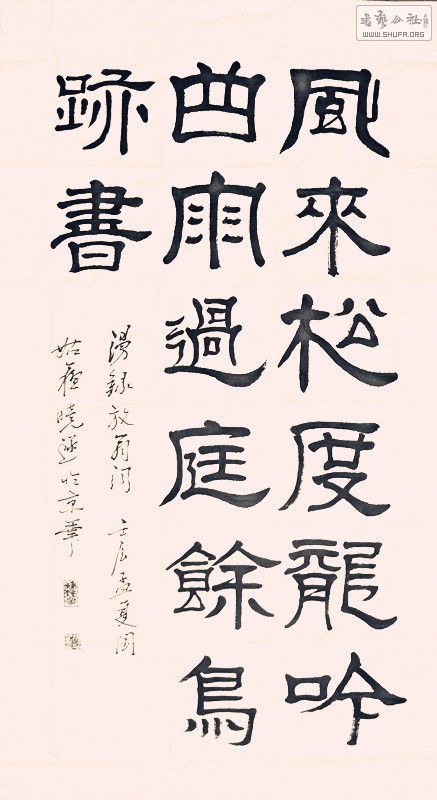 風來松度龍吟
曲雨過庭餘鳥
跡書
漫錄放翁詞 壬辰孟夏周
姑蘇曉遊於京華
書藝公社
WWW.SHUFA.ORG